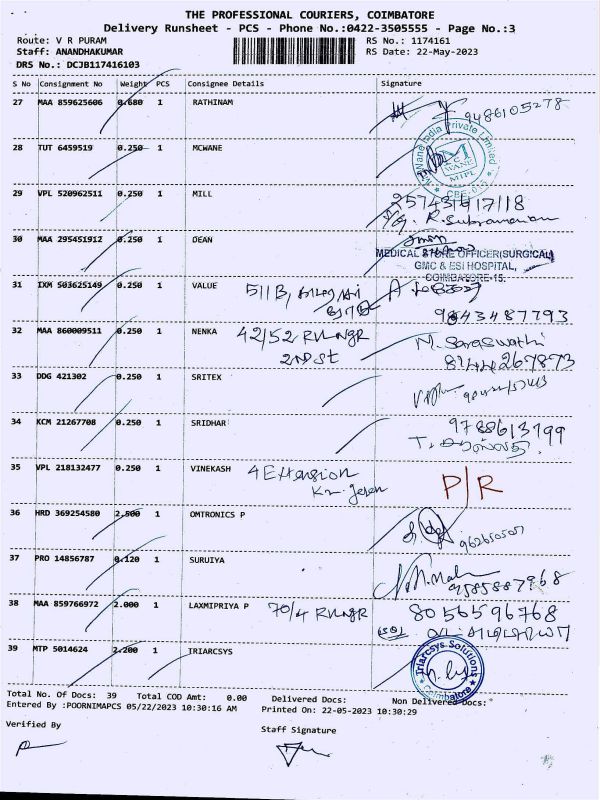 THE PROFESSIONAL COURIERS, COIMBATORE
Delivery Runsheet - PCS - Phone No.:0422-3505555 - Page No.:3
Route: V R PURAM RS No.: 1174161
Staff: ANANDHAKUMAR RS Date: 22-May-2023
DRS No.: DCJB117416103
S No Consignment No Weight PCS Consignee Details Signature
27 MAA 859625606 0.680 1 RATHINAM 9486105278
28 TUT 6459519 0.250 1 MCWANE McWane India Private Limited MCWANE MIPL
29 VPL 520962511 0.250 1 MILL 25743/417/18
R. Subramanian
30 MAA 295451912 0.250 1 DEAN
MEDICAL STORE OFFICER(SURGICAL)
GMC & ESI HOSPITAL,
COIMBATORE-15.
31 IXM 503625149 0.250 1 VALUE 511B,
9843487793
32 MAA 860009511 0.250 1 NENKA 42/52 RVL NGR M. Saraswathi
2ND St 8144267873
33 DDG 421302 0.250 1 SRITEX
34 KCM 21267708 0.250 1 SRIDHAR 9788613799
35 VPL 218132477 0.250 1 VINEKASH 4 Extension P/R
36 HRD 369254580 2.500 1 OMTRONICS P
37 PRO 14856787 0.120 1 SURUIYA 9585887968
38 MAA 859766972 2.000 1 LAXMIPRIYA P 70/4 RVL NGR 8056596768
39 MTP 5014624 2.200 1 TRIARCSYS Triarcsys Solutions Coimbatore
Total No. Of Docs: 39 Total COD Amt: 0.00 Delivered Docs: Non Delivered Docs:
Entered By :POORNIMAPCS 05/22/2023 10:30:16 AM Printed On: 22-05-2023 10:30:29
Verified By Staff Signature